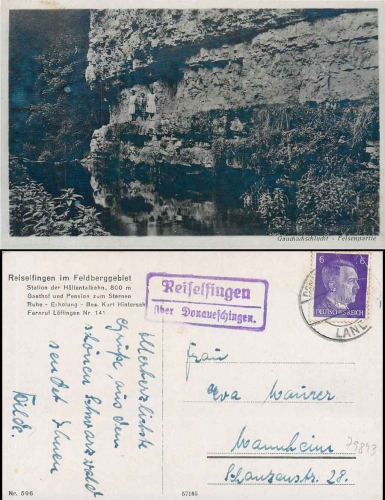 Gauchachschlucht - Felsenpartie
Reiselfingen im Feldberggebiet
Station der Höllentalbahn, 800 m
Gasthof und Pension zum Sternen
Ruhe - Erholung - Bes. Kurt Hintersch
Fernruf Löffingen Nr. 141
Reiselfingen
über Donaueschingen.
6 6
DEUTSCHES REICH
LAND
Allerherzlichste
Grüße aus dem
schönen Schwarzwald
sendet Ihnen
Frau
Eva Maurer
Mannheim
Schanzenstr. 28.
Nr. 596
57165